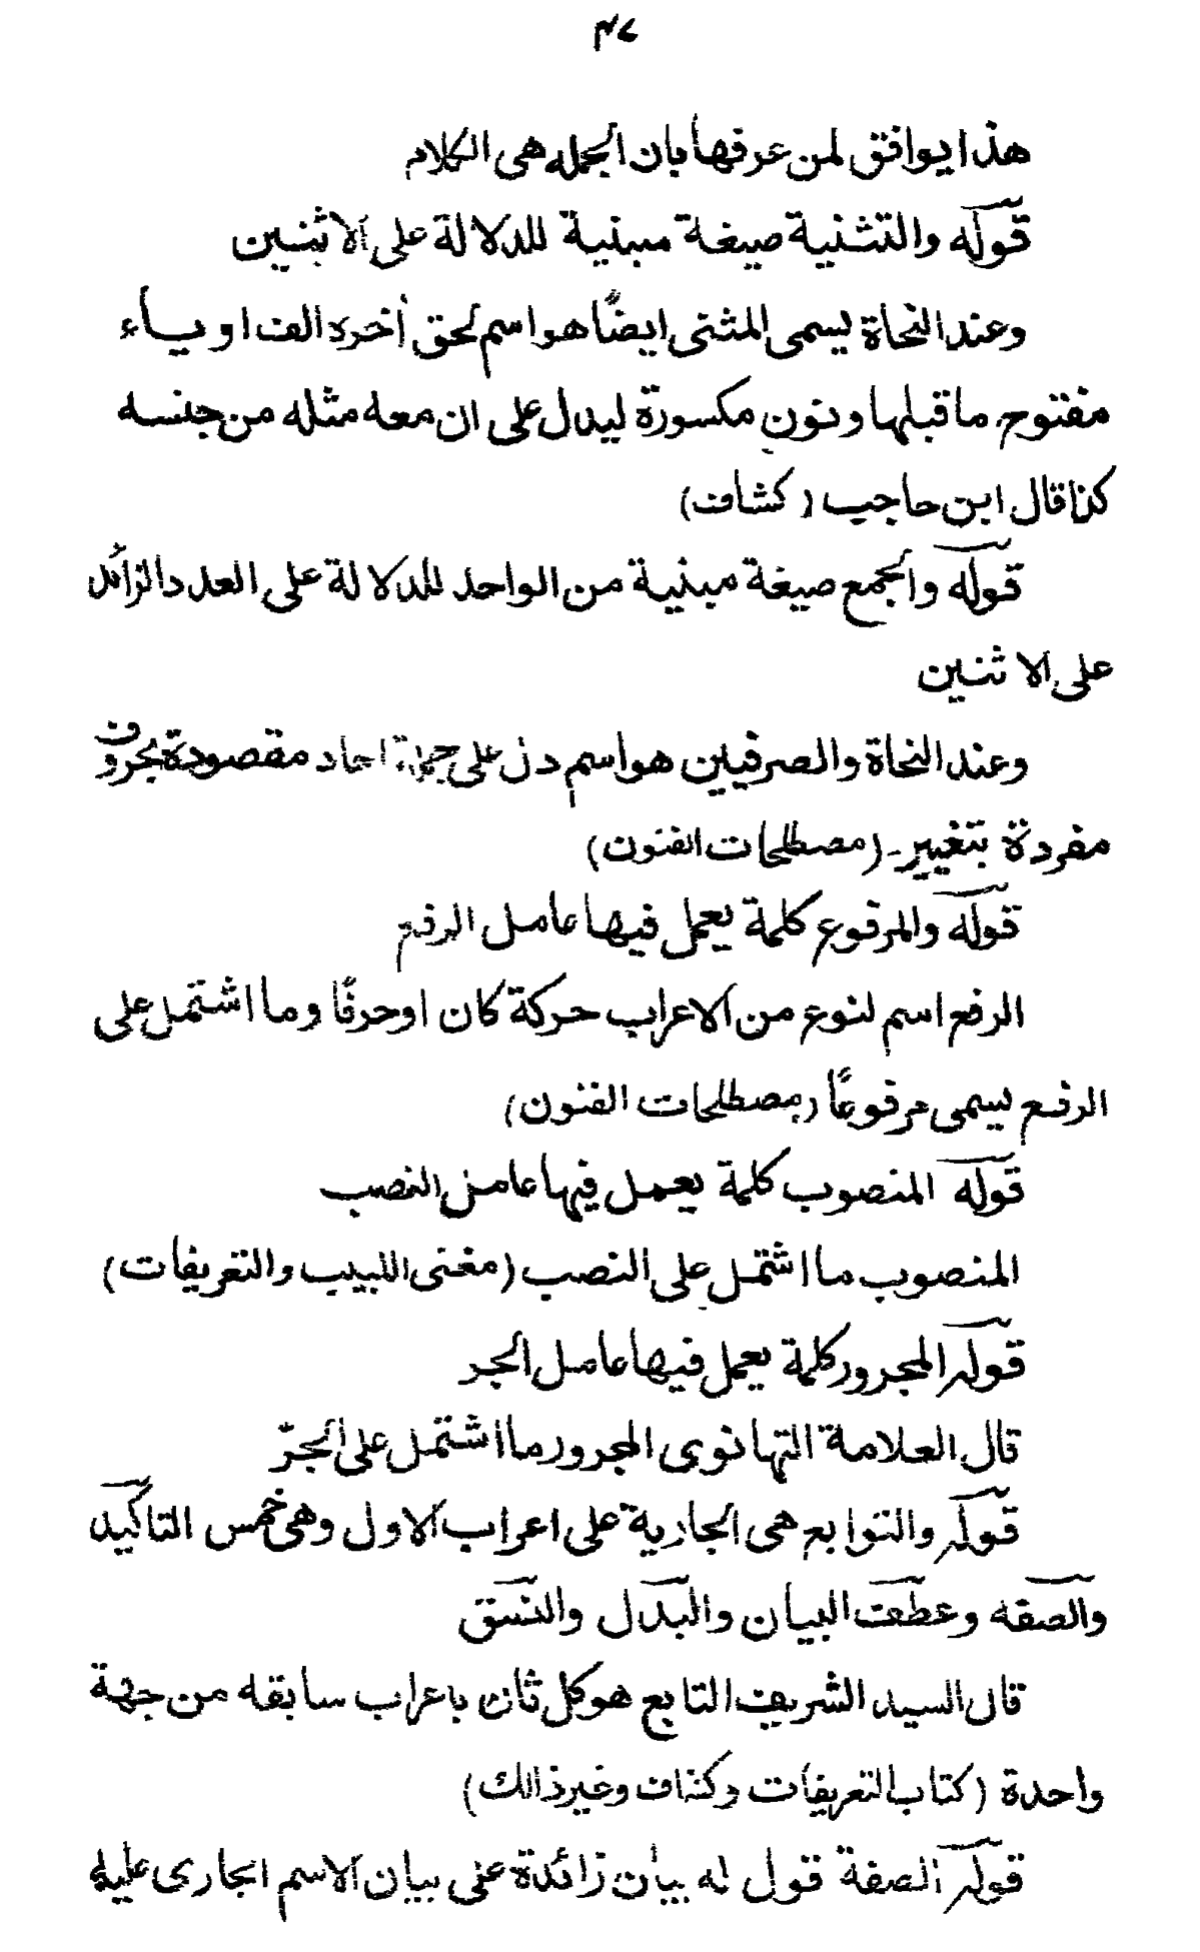 هذا يوافق لمن عرفها بان الجمله هى الكلام
قوله والتثنية صيغة مبنية للدلالة على الاثنين
وعند النحاة يسمى المثنى ايضًا هو اسم لحق أخره الف او ياء
مفتوح ما قبلها ونون مكسورة ليدل على ان معه مثله من جنسه
كذا قال ابن حاجب (كشاف)
قوله والجمع صيغة مبنية من الواحد للدلالة على العدد الزائد
على الاثنين
وعند النحاة والصرفيين هو اسم دل على جملة احاد مقصودة بحروف
مفردة بتغيير۔ (مصطلحات الفنون)
قوله والمرفوع كلمة يعمل فيها عامل الرفع
الرفع اسم لنوع من الاعراب حركة كان او حرفًا وما اشتمل على
الرفع يسمى مرفوعًا (مصطلحات الفنون)
قوله المنصوب كلمة يعمل فيها عامل النصب
المنصوب ما اشتمل على النصب (مغنى اللبيب والتعريفات)
قوله المجرور كلمة يعمل فيها عامل الجر
قال العلامة التهانوى المجرور ما اشتمل على الجرّ
قوله والتوابع هى الجارية على اعراب الاول وهى خمس التاكيد
والصفه وعطف البيان والبدل والنسق
قال السيد الشريف التابع هو كل ثان باعراب سابقه من جهة
واحدة (كتاب التعريفات وكشاف وغير ذالك)
قوله الصفة قول له بيان زائدة على بيان الاسم الجارى عليه